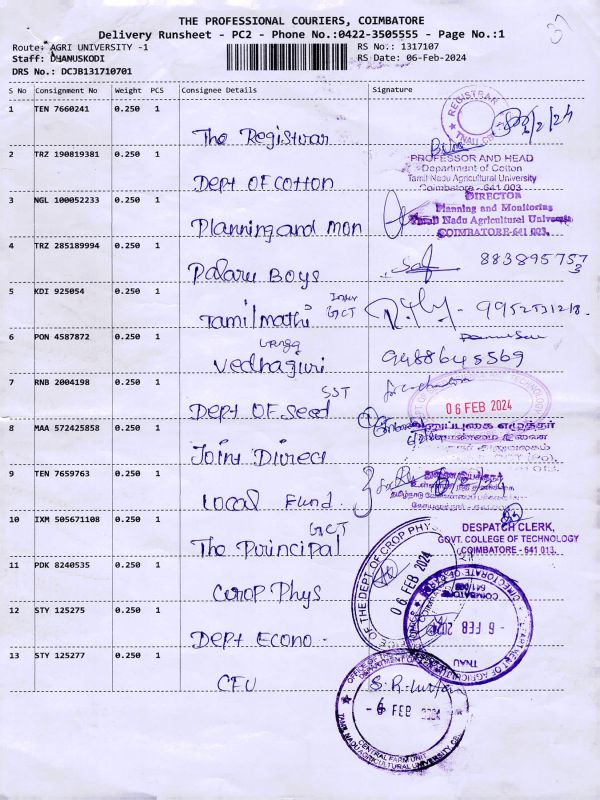 THE PROFESSIONAL COURIERS, COIMBATORE
Delivery Runsheet - PC2 - Phone No.:0422-3505555 - Page No.:1
Route: AGRI UNIVERSITY -1 RS No.: 1317107
Staff: DHANUSKODI RS Date: 06-Feb-2024
DRS No.: DCJB131710701
S No Consignment No Weight PCS Consignee Details Signature
1 TEN 7660241 0.250 1
The Registrar
REGISTRAR
2 TRZ 190819381 0.250 1
Dept OF Cotton
PROFESSOR AND HEAD
Department of Cotton
Tamil Nadu Agricultural University
Coimbatore - 641 003
3 NGL 100052233 0.250 1
Planning and mon
DIRECTOR
Planning and Monitoring
Tamil Nadu Agricultural University
COIMBATORE-641 003.
4 TRZ 285189994 0.250 1
Palaru Boys
8838957573
5 KDI 925054 0.250 1
Tamilmathi
GCT
9952531218
6 PON 4587872 0.250 1
Vedhaguri
9488645569
7 RNB 2004198 0.250 1
Dept OF Seed
SST
06 FEB 2024
8 MAA 572425858 0.250 1
Joint Direct
9 TEN 7659763 0.250 1
Local Fund
10 IXM 505671108 0.250 1
The Principal
GCT
DESPATCH CLERK,
GOVT. COLLEGE OF TECHNOLOGY
COIMBATORE - 641 013.
11 PDK 8240535 0.250 1
Crop Phys
OFFICE OF THE DEPT OF CROP PHYS
06 FEB 2024
12 STY 125275 0.250 1
Dept Econo.
- 6 FEB 2024
TNAU
13 STY 125277 0.250 1
CFU
- 6 FEB 2024
CENTRAL FARM UNIT
TAMIL NADU AGRICULTURAL UNIVERSITY